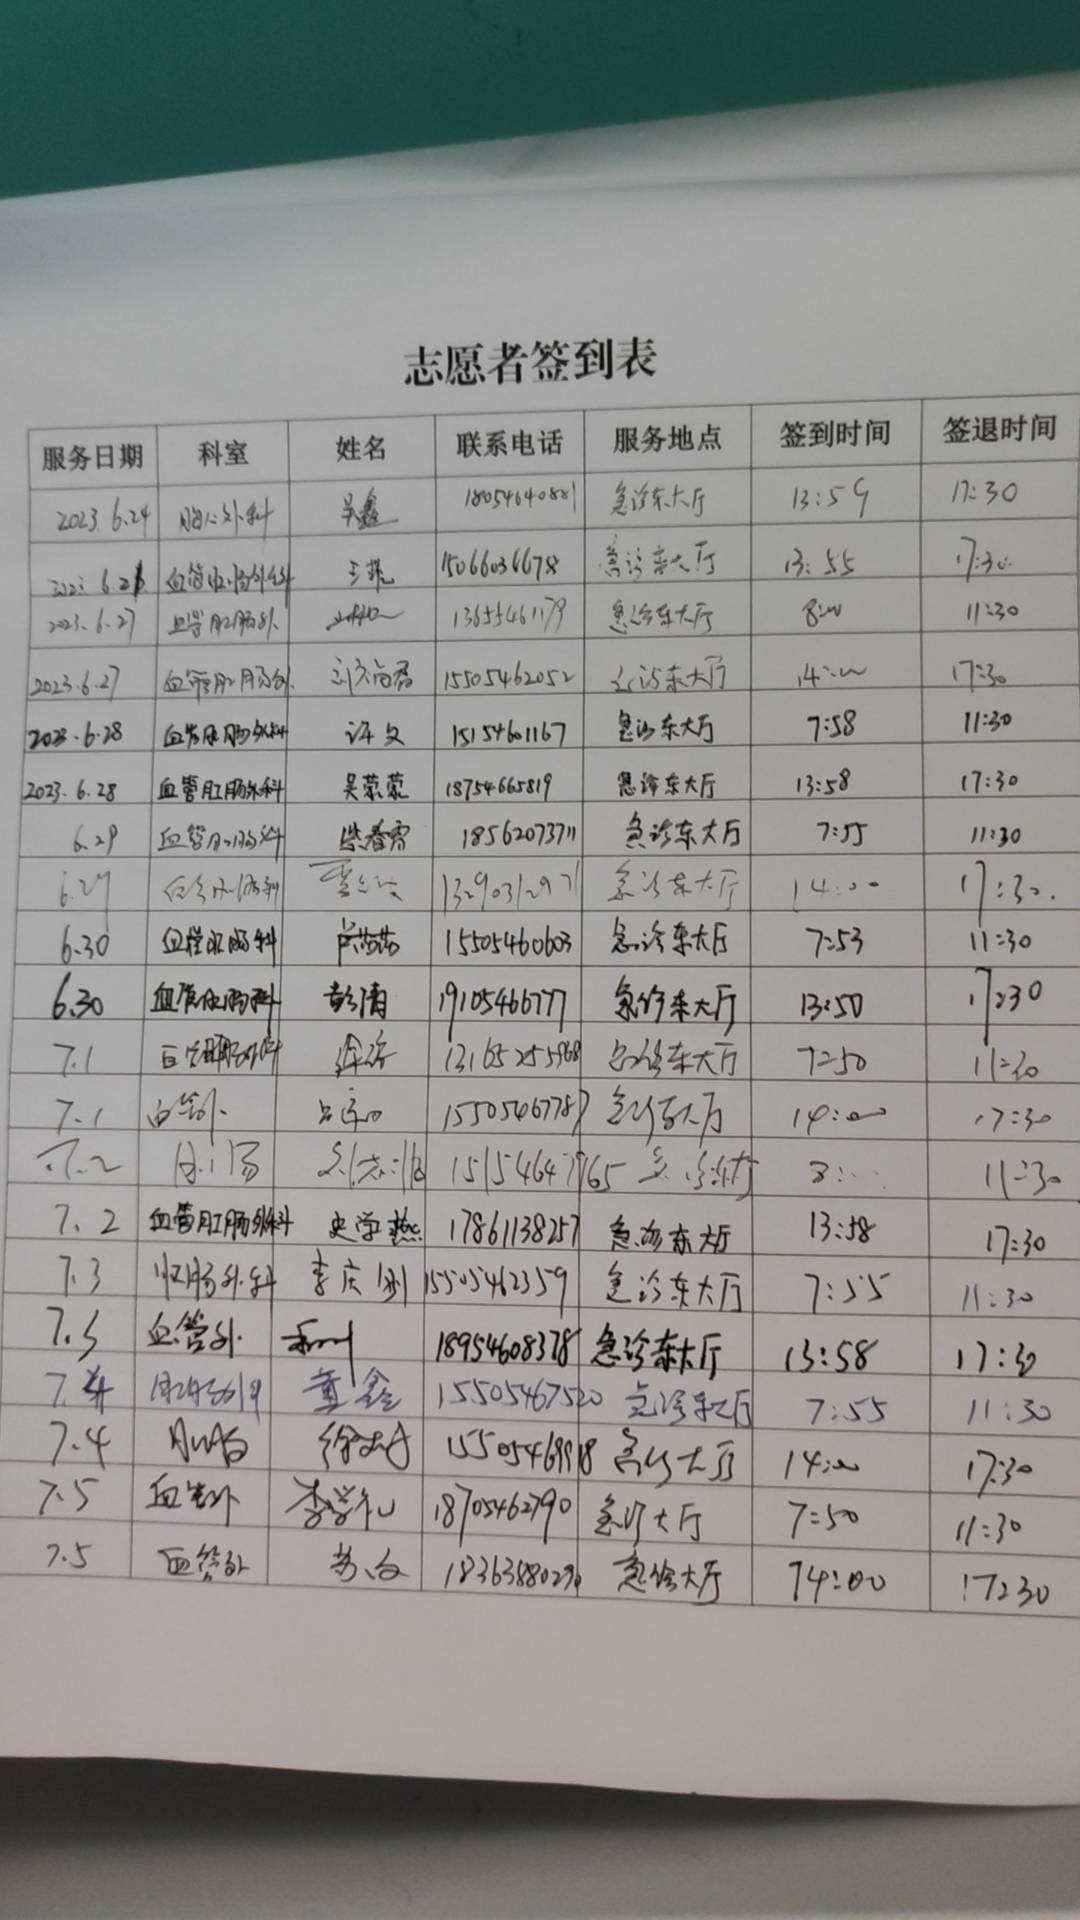 志愿者签到表
服务日期 科室 姓名 联系电话 服务地点 签到时间 签退时间
2023.6.24 胸心外科 吴鑫 18054640881 急诊东大厅 13:59 17:30
血管肛肠外科 15066036678 急诊东大厅 13:55 17:30
2023.6.27 血管肛肠外 13655461179 急诊东大厅 8:00 11:30
2023.6.27 血管肛肠外 15505462052 急诊东大厅 14:00 17:30
2023.6.28 血管肛肠外科 许文 15154601167 急诊东大厅 7:58 11:30
2023.6.28 血管肛肠外科 吴荣荣 18754665819 急诊东大厅 13:58 17:30
6.29 血管肛肠科 柴春霄 18562073711 急诊东大厅 7:55 11:30
6.29 急诊东大厅 14:00 17:30.
6.30 血管肛肠科 芦茜茜 15505460603 急诊东大厅 7:53 11:30
6.30 血管肛肠科 彭倩 19105466777 急诊东大厅 13:50 17:30
7.1 急诊东大厅 7:50 11:30
7.1 血管外 15505467787 急诊东大厅 14:00 17:30
7.2 肛肠 11:30
7.2 血管肛肠外科 史学燕 17861138257 急诊东大厅 13:58 17:30
7.3 肛肠外科 李庆刚 15505462359 急诊东大厅 7:55 11:30
7.3 血管外 18954608378 急诊东大厅 13:58 17:30
7.4 董鑫 15505467520 急诊东大厅 7:55 11:30
7.4 肛肠 急诊大厅 14:00 17:30
7.5 血管外 李学礼 18705462790 急诊大厅 7:50 11:30
7.5 血管外 急诊大厅 14:00 17:30